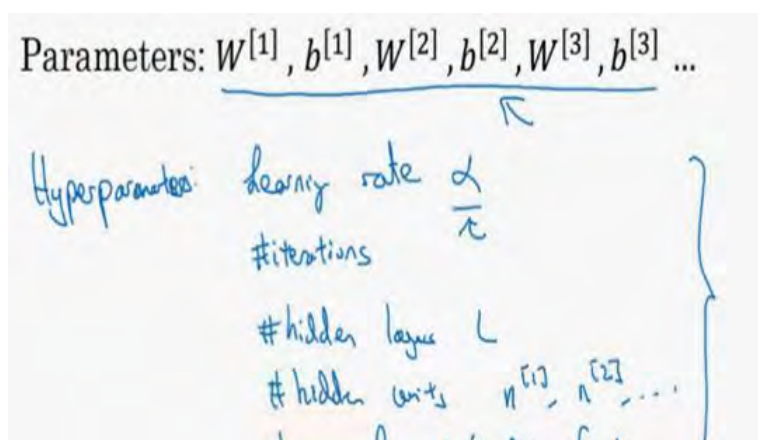 Parameters: W[1] , b[1] ,W[2] ,b[2] ,W[3] ,b[3] ...
Hyperparameters: Learning rate α
#iterations
#hidden layers L
#hidden units n[1], n[2], ....